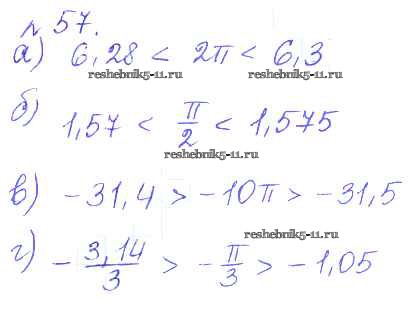 № 57.
а) 6,28 < 2π < 6,3
reshebnik5-11.ru reshebnik5-11.ru
б) 1,57 < π/2 < 1,575
reshebnik5-11.ru
в) -31,4 > -10π > -31,5
reshebnik5-11.ru
г) -3,14/3 > -π/3 > -1,05